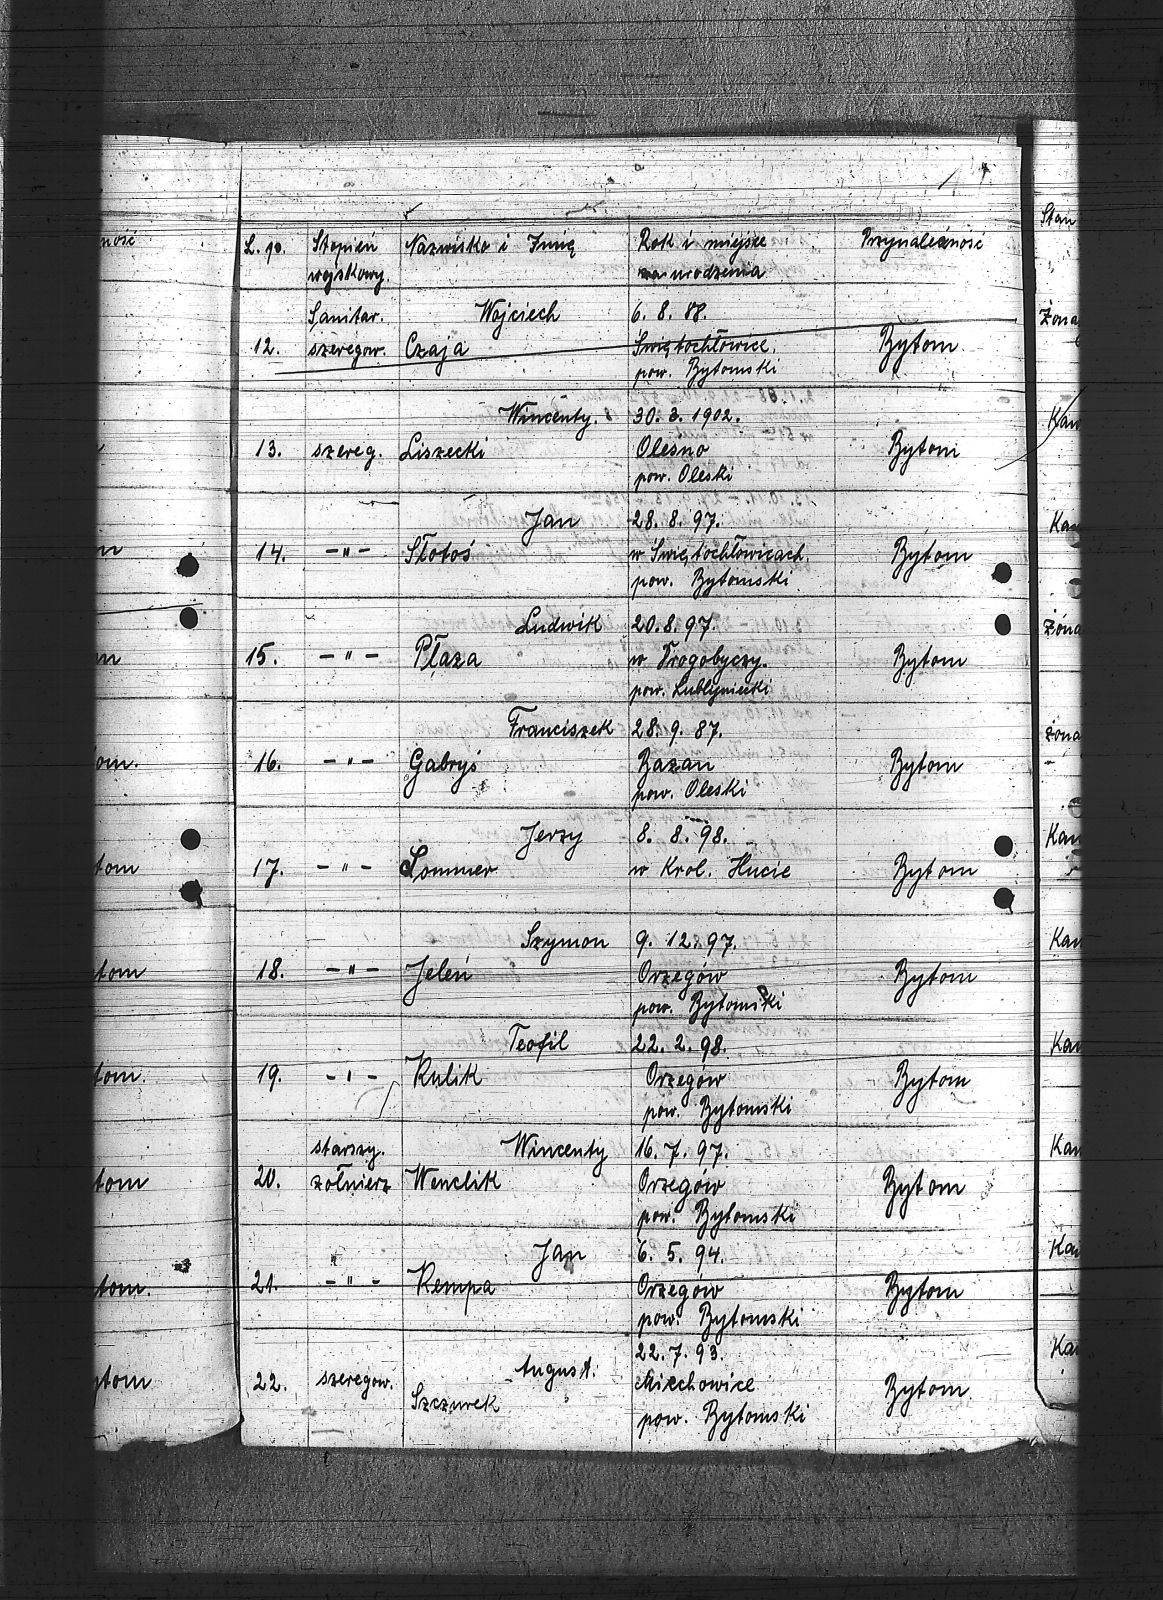 ność
L. p. Stopień Nazwisko i Imię Rok i miejsce Przynależność
wojskowy urodzenia
Stan
Sanitar. Wojciech 6. 8. 88.
Żona
12. szeregow. Czaja Świętochłowice. Bytom
pow. Bytomski
Wincenty. 30. 3. 1902.
Kaw
13. szereg. Liszecki Olesno Bytom
pow. Oleski
Jan 28. 8. 97.
Kaw
14. -"- Słotoś w Świętochłowicach. Bytom
pow. Bytomski
Ludwik 20. 8. 97.
Żona
15. -"- Płaza w Drogobyczy. Bytom
pow. Lublyniecki
Franciszek 28. 9. 87.
żona
om. 16. -"- Gabryś Bazan Bytom
pow. Oleski
Jerzy 8. 8. 98.
Kaw
tom 17. -"- Sommer w Krol. Hucie Bytom
Szymon 9. 12. 97.
Kaw
tom 18. -"- Jeleń Orzegów Bytom
pow. Bytomski
Teofil 22. 2. 98.
Kaw
tom. 19. -"- Kulik Orzegów Bytom
pow. Bytomski
starszy. Wincenty 16. 7. 97.
Kaw
tom 20. żołnierz Wenclik Orzegów Bytom
pow. Bytomski
Jan 6. 5. 94.
Kaw
tom. 21. -"- Kempa Orzegów Bytom
pow. Bytomski
22. 7. 93.
Kaw
ytom 22. szeregow. August. Miechowice Bytom
Szczurek pow. Bytomski